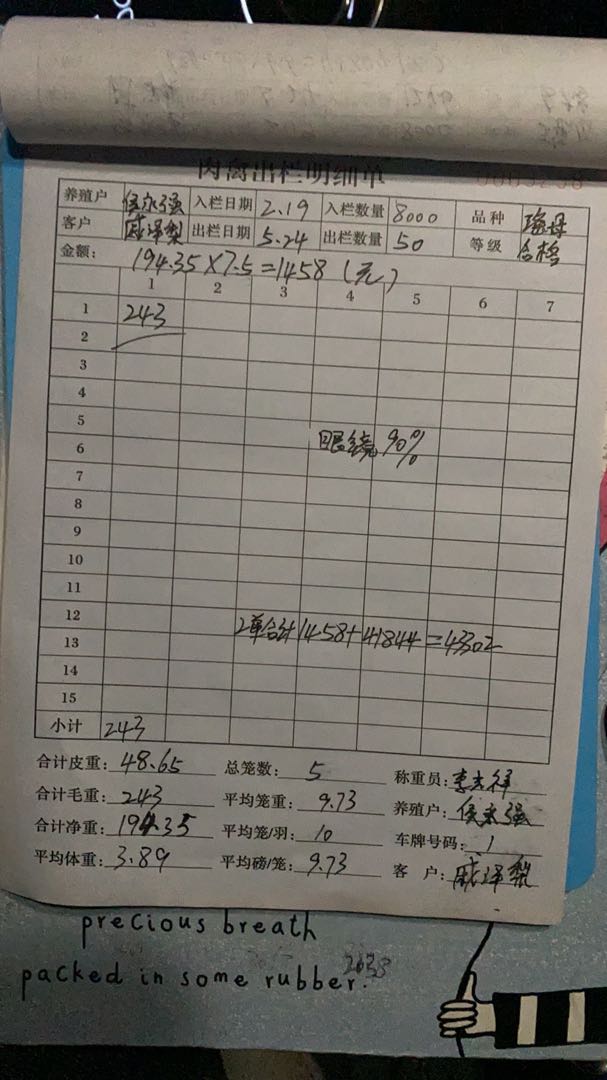 肉禽出栏明细单
养殖户 侯永强 入栏日期 2.19 入栏数量 8000 品种 瑶母
客户 戚泽梨 出栏日期 5.24 出栏数量 50 等级 合格
金额: 194.35×7.5=1458(元)
1 2 3 4 5 6 7
1 243
2
3
4
5
6 眼线 90%
7
8
9
10
11
12
13 2单合计 1458+41844=43302
14
15
小计 243
合计皮重: 48.65 总笼数: 5 称重员:
合计毛重: 243 平均笼重: 9.73 养殖户: 侯永强
合计净重: 194.35 平均笼/羽: 10 车牌号码: 1
平均体重: 3.89 平均磅/笼: 9.73 客 户: 戚泽梨
precious breath
packed in some rubber.